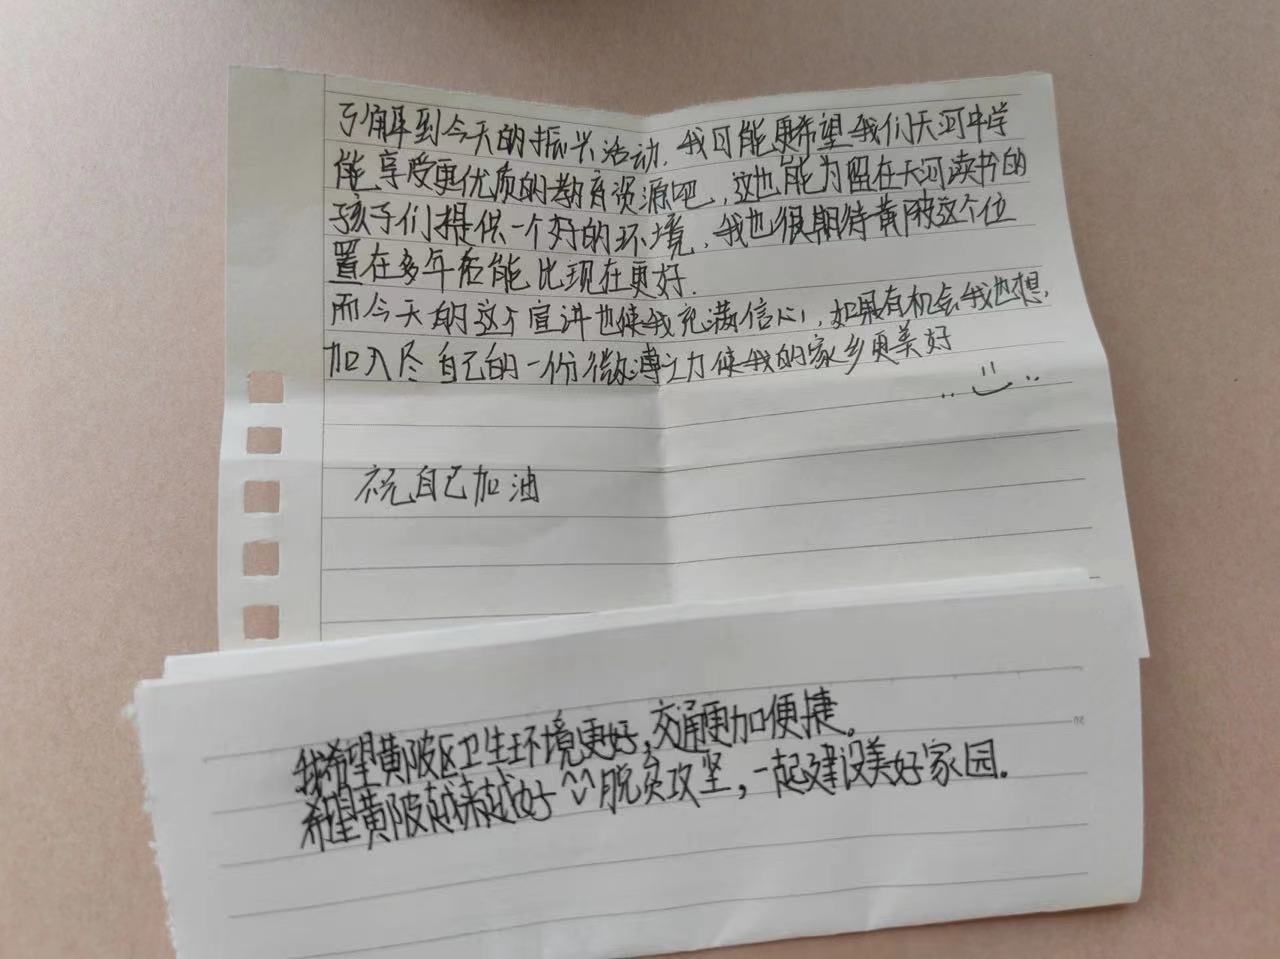 了解到今天的振兴活动，我可能更希望我们天河中学
能享受更优质的教育资源吧，这也能为留在天河读书的
孩子们提供一个好的环境，我也很期待黄陂这个位
置在多年后能比现在更好.
而今天的这个宣讲也使我充满信心，如果有机会我也想，
加入尽自己的一份微薄之力使我的家乡更美好
祝自己加油
我希望黄陂区卫生环境更好，交通更加便捷。
希望黄陂越来越好^^脱贫攻坚，一起建设美好家园。